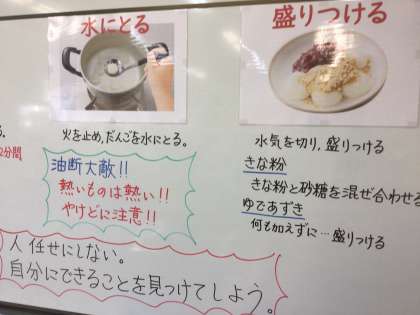 水にとる
火を止め,だんごを水にとる。
2分間
油断大敵!!
熱いものは熱い!!
やけどに注意!!
人任せにしない。
自分にできることを見つけてしよう。
盛りつける
水気を切り,盛りつける
きな粉
きな粉と砂糖を混ぜ合わせる
ゆであずき
何も加えずに…盛りつける